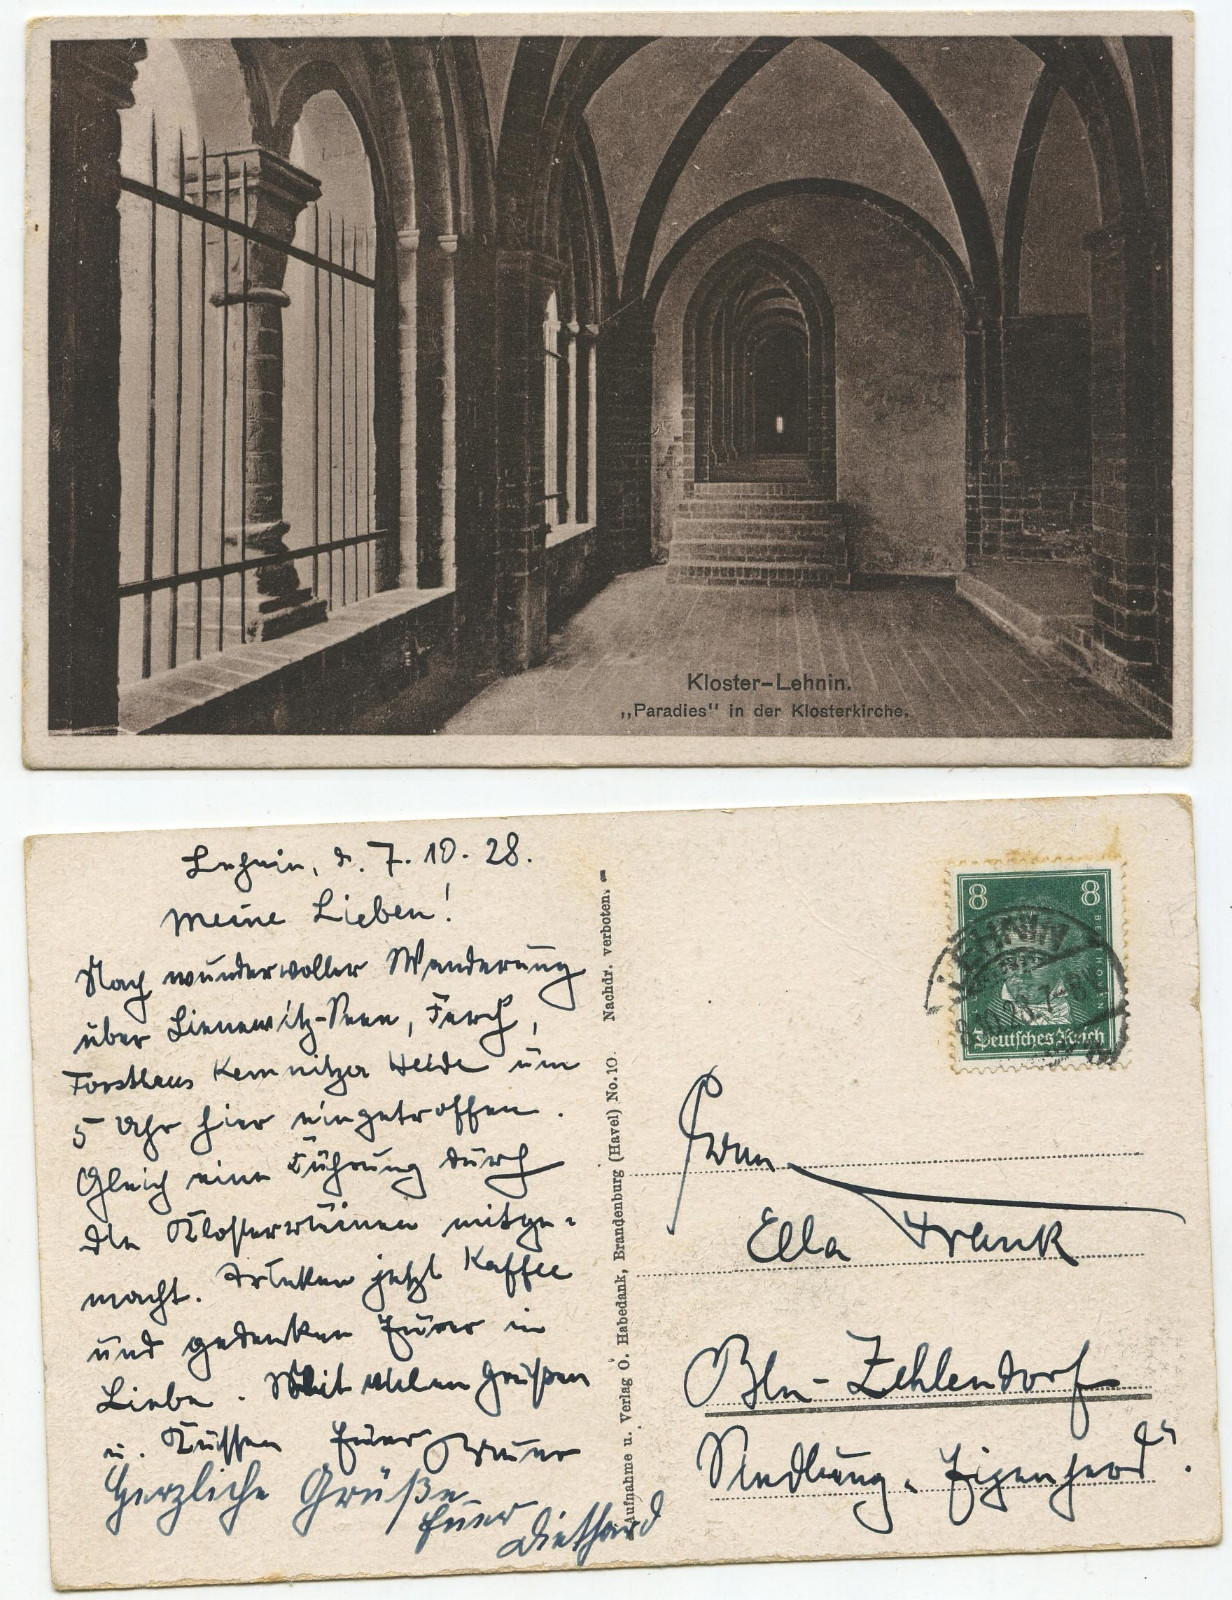 Kloster-Lehnin.
„Paradies" in der Klosterkirche.
Lehnin, d. 7. 10. 28.
Meine Lieben!
Nach wundervoller Wanderung
über Lienewitz-Seen, Ferch,
Forsthaus Kemnitzer Heide um
5 Uhr hier eingetroffen.
Gleich eine Führung durch
die Klosterruinen mitge-
macht. Trinken jetzt Kaffee
und gedenken Eurer in
Liebe. Mit vielen Grüßen
u. Küssen Euer
Herzliche Grüße
Euer
Diethard
Aufnahme u. Verlag O. Habedank, Brandenburg (Havel) No. 10 Nachdr. verboten.
8 8
Deutsches Reich
LEHNIN
Frau
Ella Frank
Bln-Zehlendorf
Siedlung „Eigenherd".